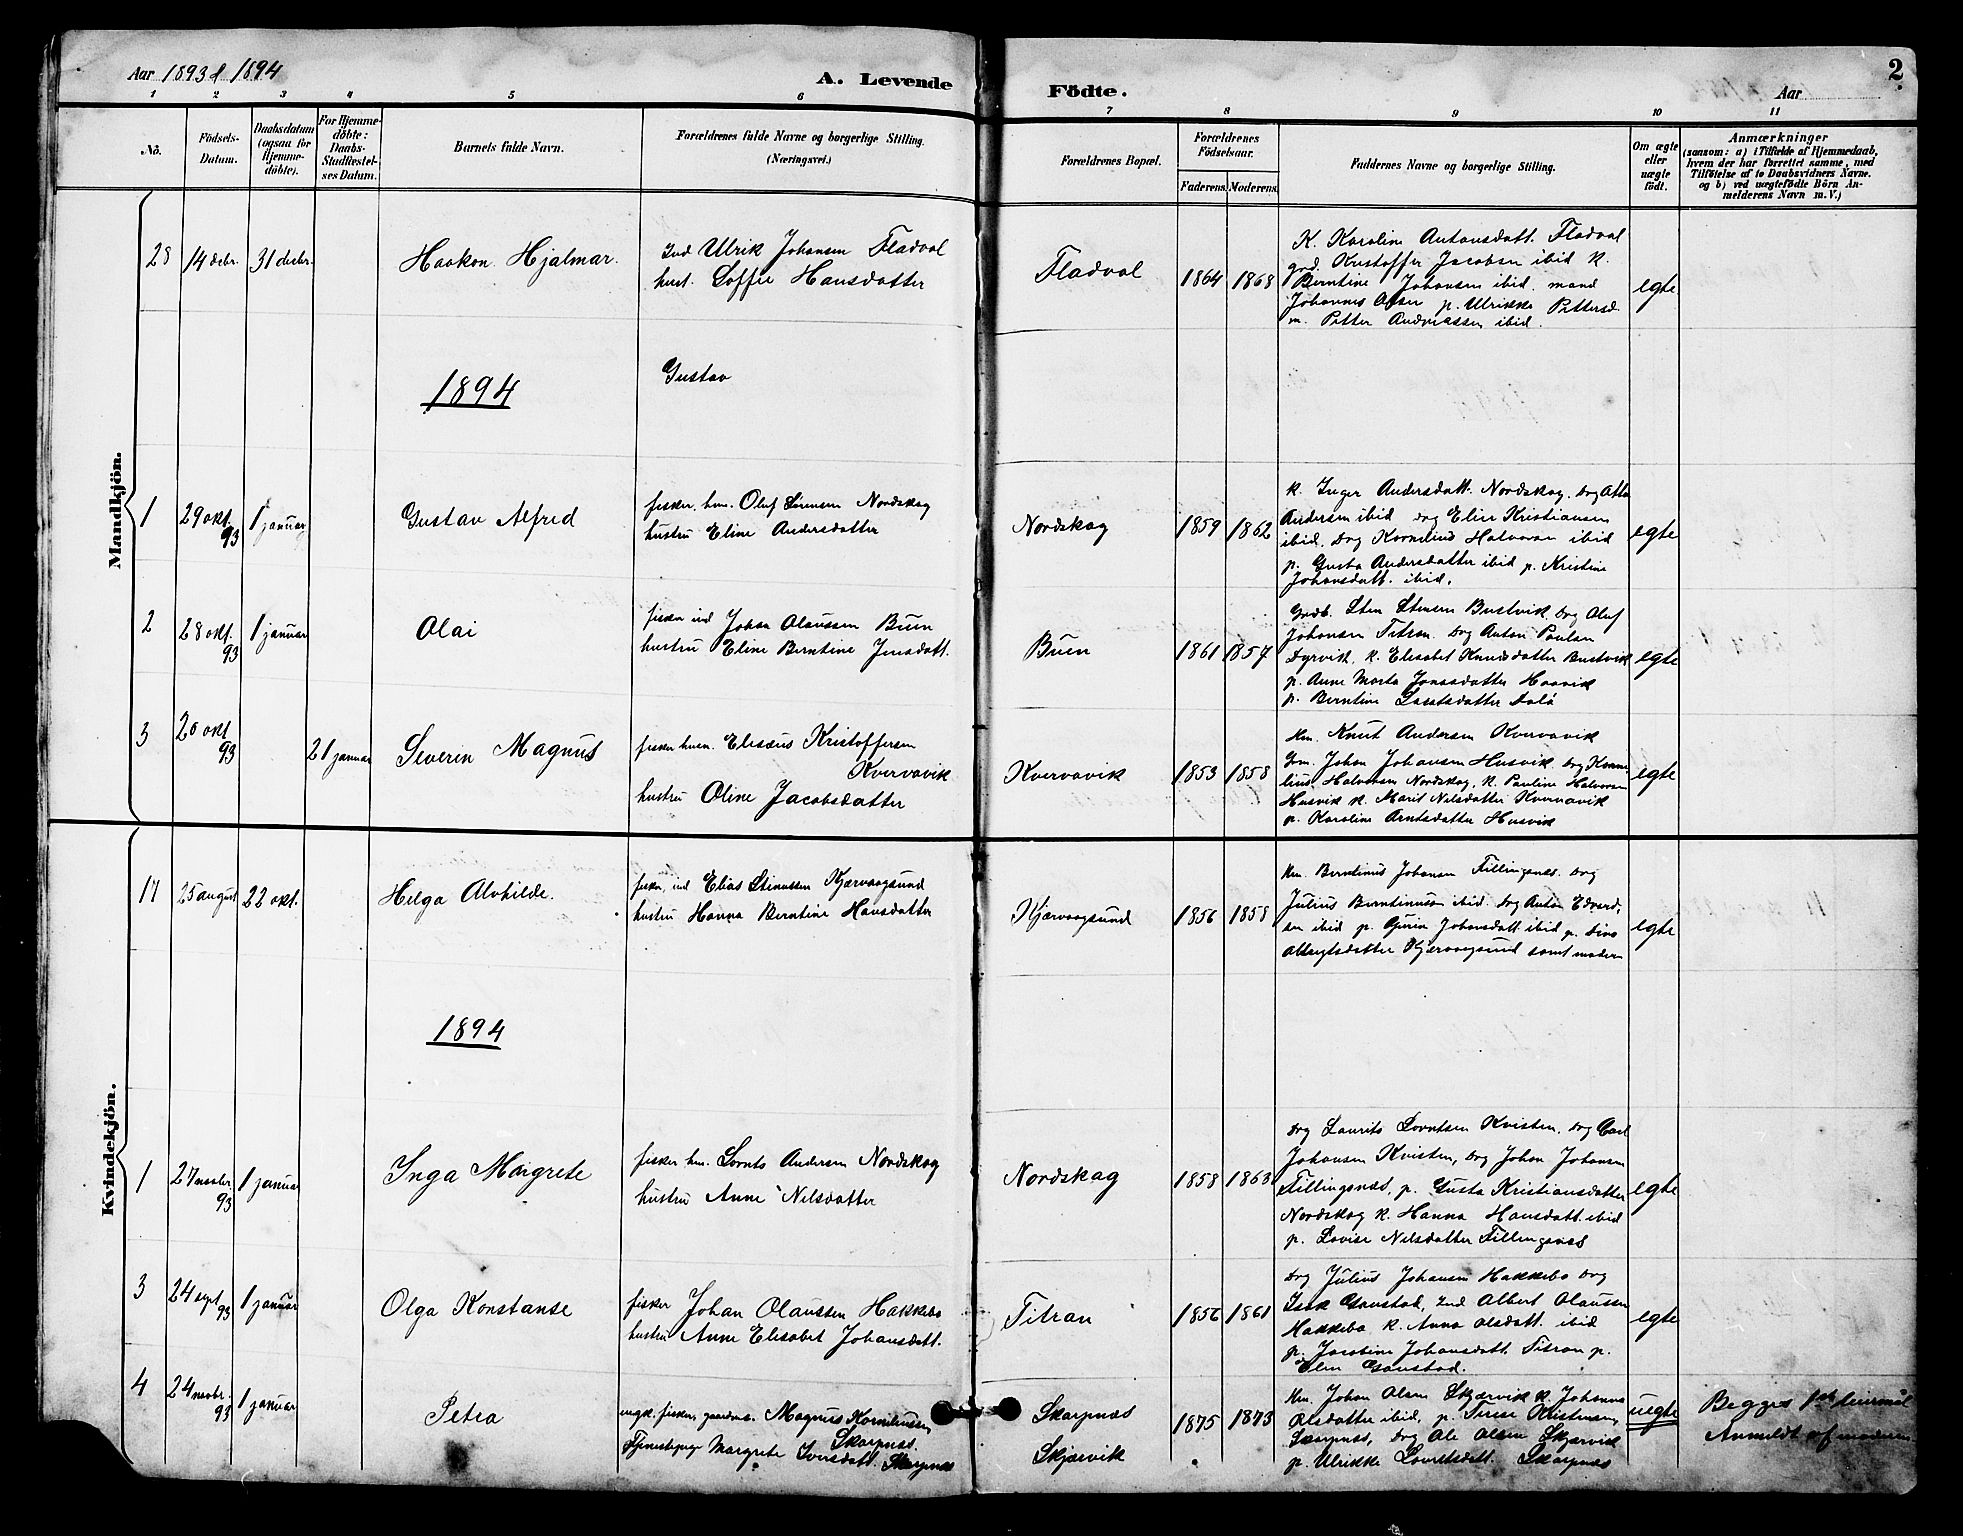 Aar 1893 & 1894
A. Levende
Födte.
Aar
2
1 2 3 4 5 6 7 8 9 10 11
No.
Födsels-Datum.
Daabsdatum (ogsaa for Hjemme-döbte).
For Hjemme-döbte: Daabs-Stadfæstel-ses Datum.
Barnets fulde Navn.
Forældrenes fulde Navne og borgerlige Stilling.
(Næringsvei.)
Forældrenes Bopæl.
Forældrenes Födselsaar.
Faderens. Moderens.
Faddernes Navne og borgerlige Stilling.
Om ægte eller uægte födt.
Anmærkninger
(saasom: a) i Tilfælde af Hjemmedaab,
hvem der har forrettet samme, med
Tilföielse af to Daabsvidners Navne.
og b) ved uægtefödte Börn An-
melderens Navn m. V.)
Mandkjön.
28 14 decbr. 31 decbr. Haakon Hjalmar.
Ind Ulrik Johansen Fladval
hust. Soffie Hansdatter
Fladval 1864 1868
K. Karoline Antonsdatt. Fladval
grd. Kristoffer Jacobsen ibid K.
Berntine Johansen ibid. mand
Johannes Olsen p. Ulrikke Pettersd.
m. Petter Andreassen ibid.
egte
1894
Gustav
1 29 okt. 93 1 januar Gustav Alfred
fisker, hm. Oluf Sørensen Nordskag
hustru Eline Andersdatter
Nordskag 1859 1862
K. Inger Andersdatt. Nordskag, drg Otto
Andersen ibid drg Elier Kristiansen
ibid. drg Kornelius Halvorsen ibid
p. Gusta Andersdatter ibid p. Kristine
Johansdatt. ibid.
egte
2 28 okt. 93 1 januar Olai
fisker ind Johan Olaussen Buen
hustru Eline Berntine Jensdatt.
Buen 1861 1857
Grdb. Sten Stensen Bustvik drg Oluf
Johansen Titran drg Anton Paulsen
Dyrvik, K. Elisabet Knudsdatter Bustvik
p. Anne Marta Jonasdatter Haavik
p. Berntine
egte
3 20 okt 93 21 januar Severin Magnus
fisker husm. Elisæus Kristoffersen
Kvervavik
hustru Oline Jacobsdatter
Kvervavik 1853 1858
Hm. Knut Andersen Kvervavik
Gm. Johan Johansen Husvik drg Korne-
lius Halvorsen Nordskag, K. Pauline Halvorsen
Husvik K. Marit Nilsdatter Kvervavik
p. Karoline Arntsdatter Husvik
egte
Kvindekjön.
17 25 august 22 okt. Helga Alvhilde.
fisker, ind Elias Stinussen Kjærvaagsund
hustru Hanna Berntine Hansdatter
Kjærvaagsund 1856 1858
Hm. Berntinus Johansen Fillingsnes drg
Julius Berntinusen ibid. drg Anton Edvard-
sen ibid p. Gurin Johansdatt ibid p. Sina
Albrigtsdatter Kjærvaagsund samt moderen
egte
1894
1 27 novbr. 93 1 januar Inga Margrete
fisker hm. Lornts Andersen Nordskag
hustru Anne Nilsdatter
Nordskag 1858 1863
drg Laurits Lorntsen Kvisten, drg Carl
Johansen Kvisten, drg Johan Johansen
Fillingsnæs, p. Gusta Kristiansdatter
Nordskag K. Hanna Hansdatt. ibid
p. Lovise Nilsdatter Fillingsnes
egte
3 24 sept 93 1 januar Olga Konstanse
fisker Johan Olaussen Hakkebo
hustru Anne Elisabet Johansdatt.
Titran 1856 1861
drg Julius Johansen Hakkebo drg
Isak Gaustad, Ind Albert Olaussen
Hakkebo K. Anna Olsdatt. ibid
p. Jacobine Johansdatt. Titran p.
Elen Gaustad.
egte
4 24 novbr. 93 1 januar Petra
ungk. fisker, gaardm. Magnus Korneliussen
Skarpnæs.
Tjenestepige Margrete Iversdatt. Skarpnæs
Skarpnæs
Skjærvik
1875 1873
Hm. Johan Olsen Skjærvik K. Johanna
Olsdatter ibid, p. Terese Kristensen,
Skarpnæs, drg Ole Olsen Skjærvik
p. Ulrikke Lorntsdatt. Skarpnæs
uegte
Begges 1ste leiermål
Anmeldt af moderen